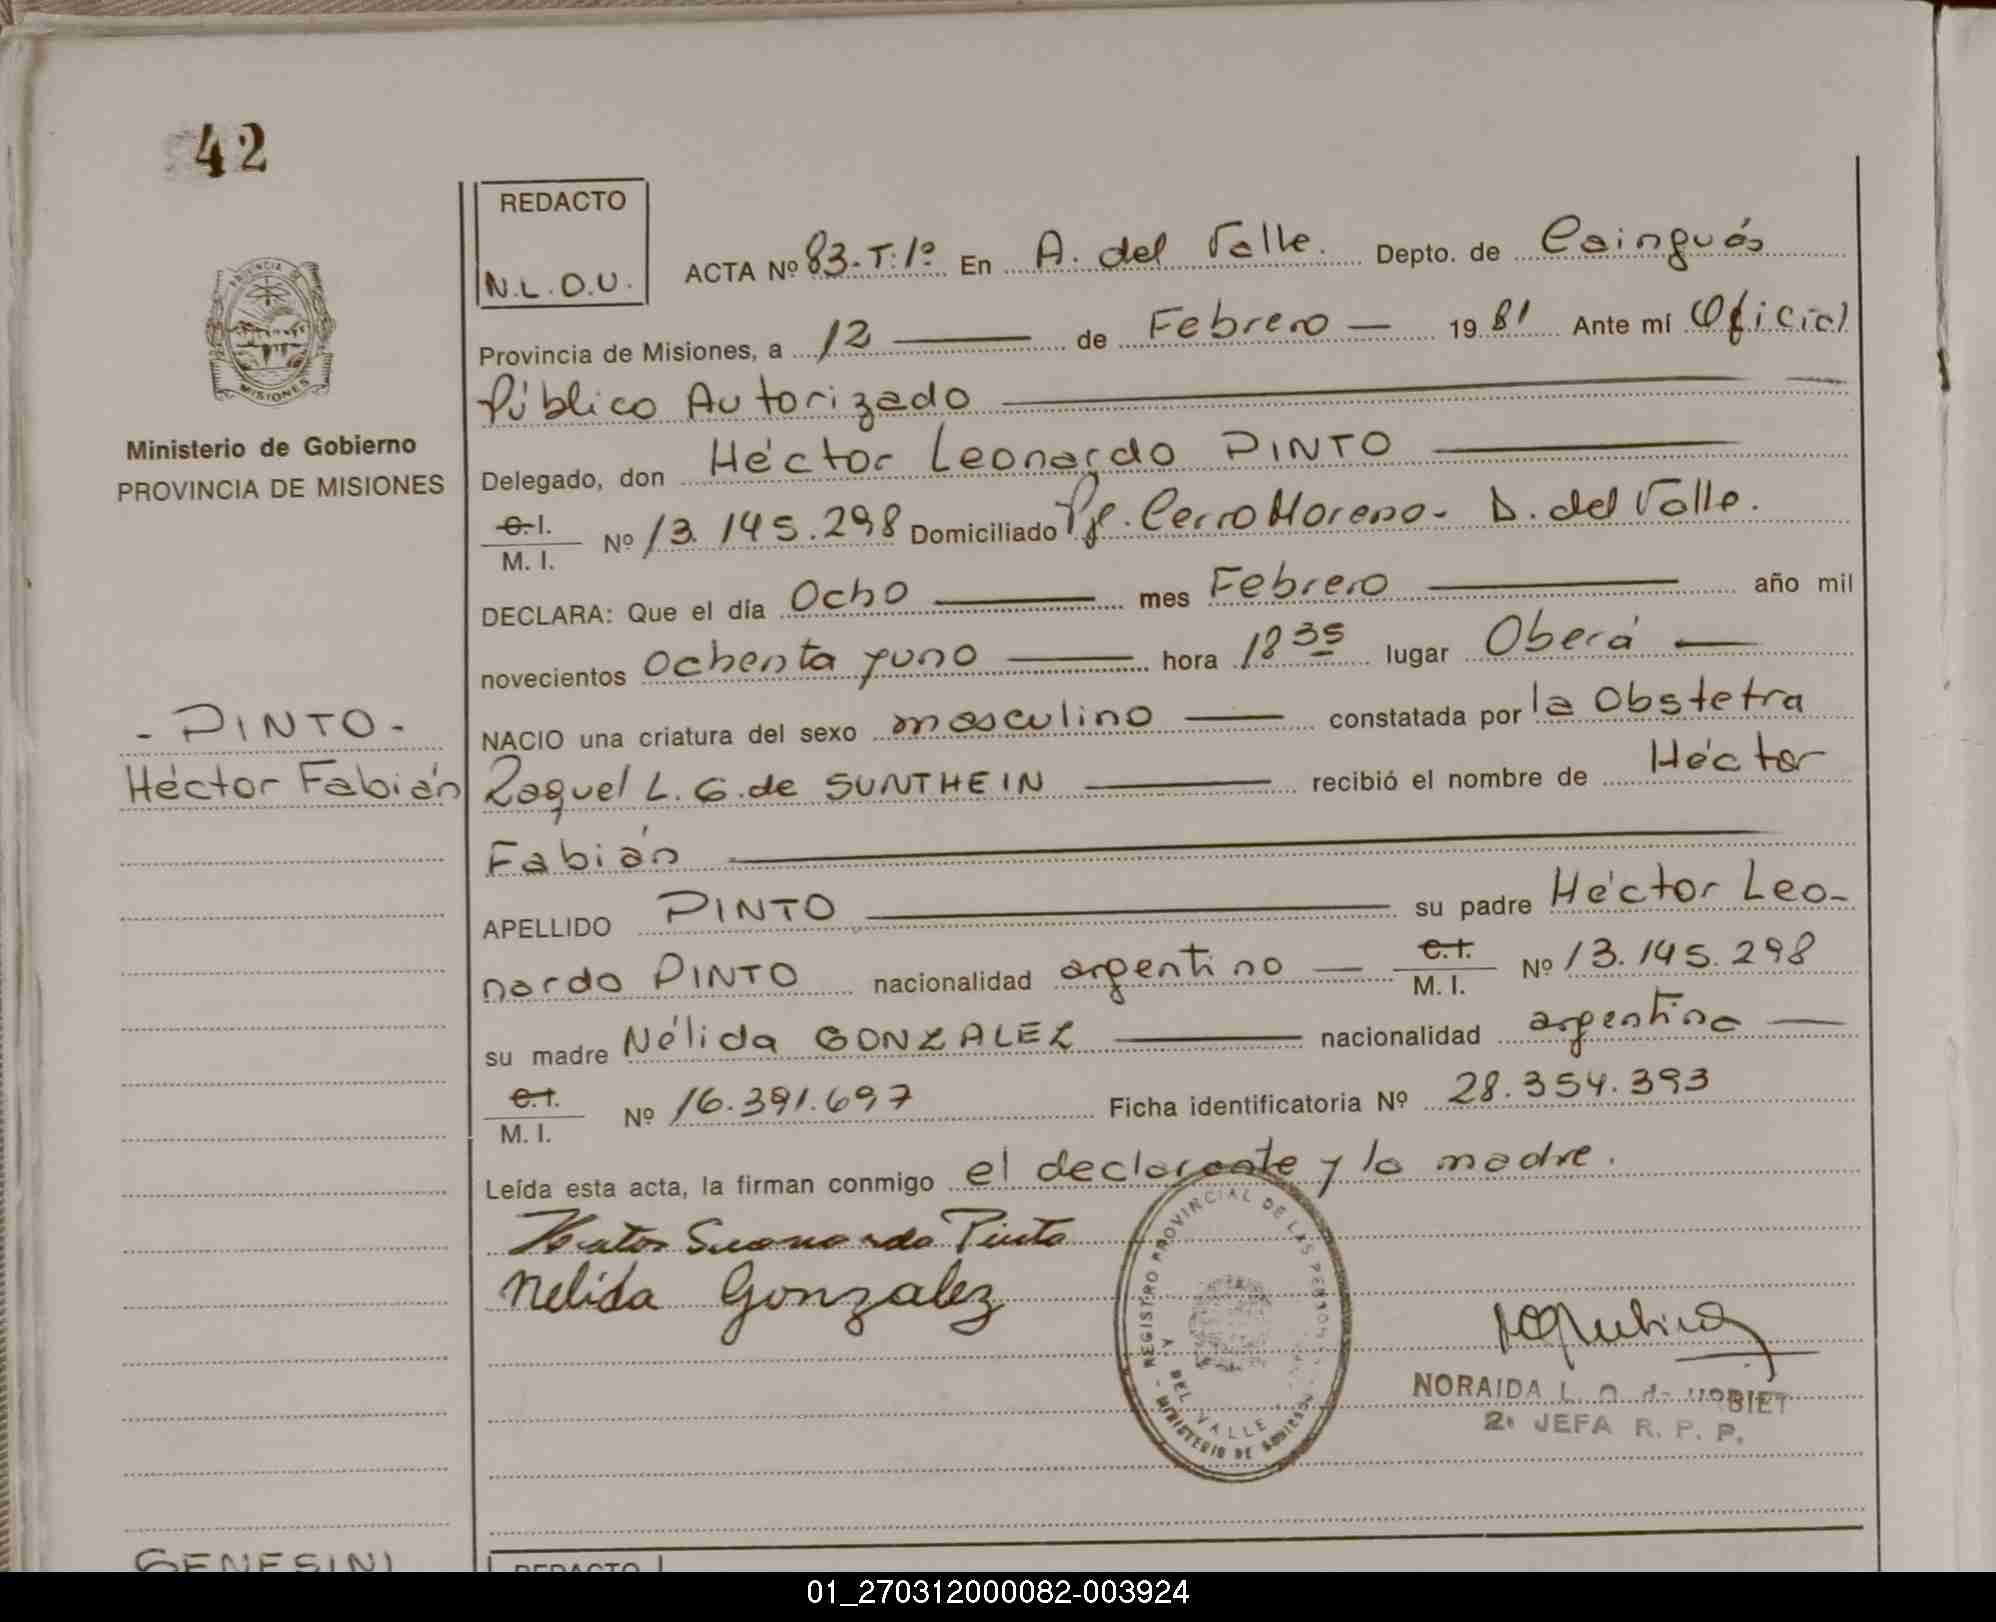 42
REDACTO
N.L.O.U.
ACTA Nº 83.T:1º En A. del Valle. Depto. de Cainguás
Provincia de Misiones, a 12 de Febrero 1981 Ante mí Oficial
Público Autorizado
Delegado, don Héctor Leonardo PINTO
C.I.
M. I. Nº 13.145.298 Domiciliado Pje. Cerro Moreno - A. del Valle.
DECLARA: Que el día Ocho mes Febrero año mil
novecientos Ochenta y uno hora 18 35 lugar Oberá
NACIO una criatura del sexo masculino constatada por la Obstetra
Raquel L. G. de SUNTHEIN recibió el nombre de Héctor
Fabián
APELLIDO PINTO su padre Héctor Leo-
nardo PINTO nacionalidad argentino C.I. M. I. Nº 13.145.298
su madre Nélida GONZALEZ nacionalidad argentina
C.I.
M. I. Nº 16.391.697 Ficha identificatoria Nº 28.354.393
Leída esta acta, la firman conmigo el declarante y la madre.
Hector Leonardo Pinto
Nelida Gonzalez
REGISTRO PROVINCIAL DE LAS PERSONAS
DEL VALLE
MINISTERIO DE GOBIERNO
NORAIDA L. de
2º JEFA R. P. P.
PROVINCIA DE
MISIONES
Ministerio de Gobierno
PROVINCIA DE MISIONES
- PINTO -
Héctor Fabián
GENESINI
REDACTO
01_270312000082-003924